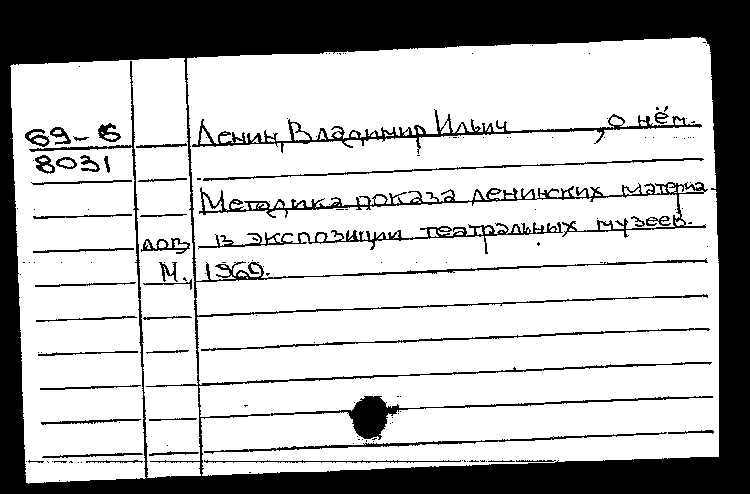 69-6 Ленин, Владимир Ильич , о нём.
8031
Методика показа ленинских материа-
лов в экспозиции театральных музеев.
М., 1969.